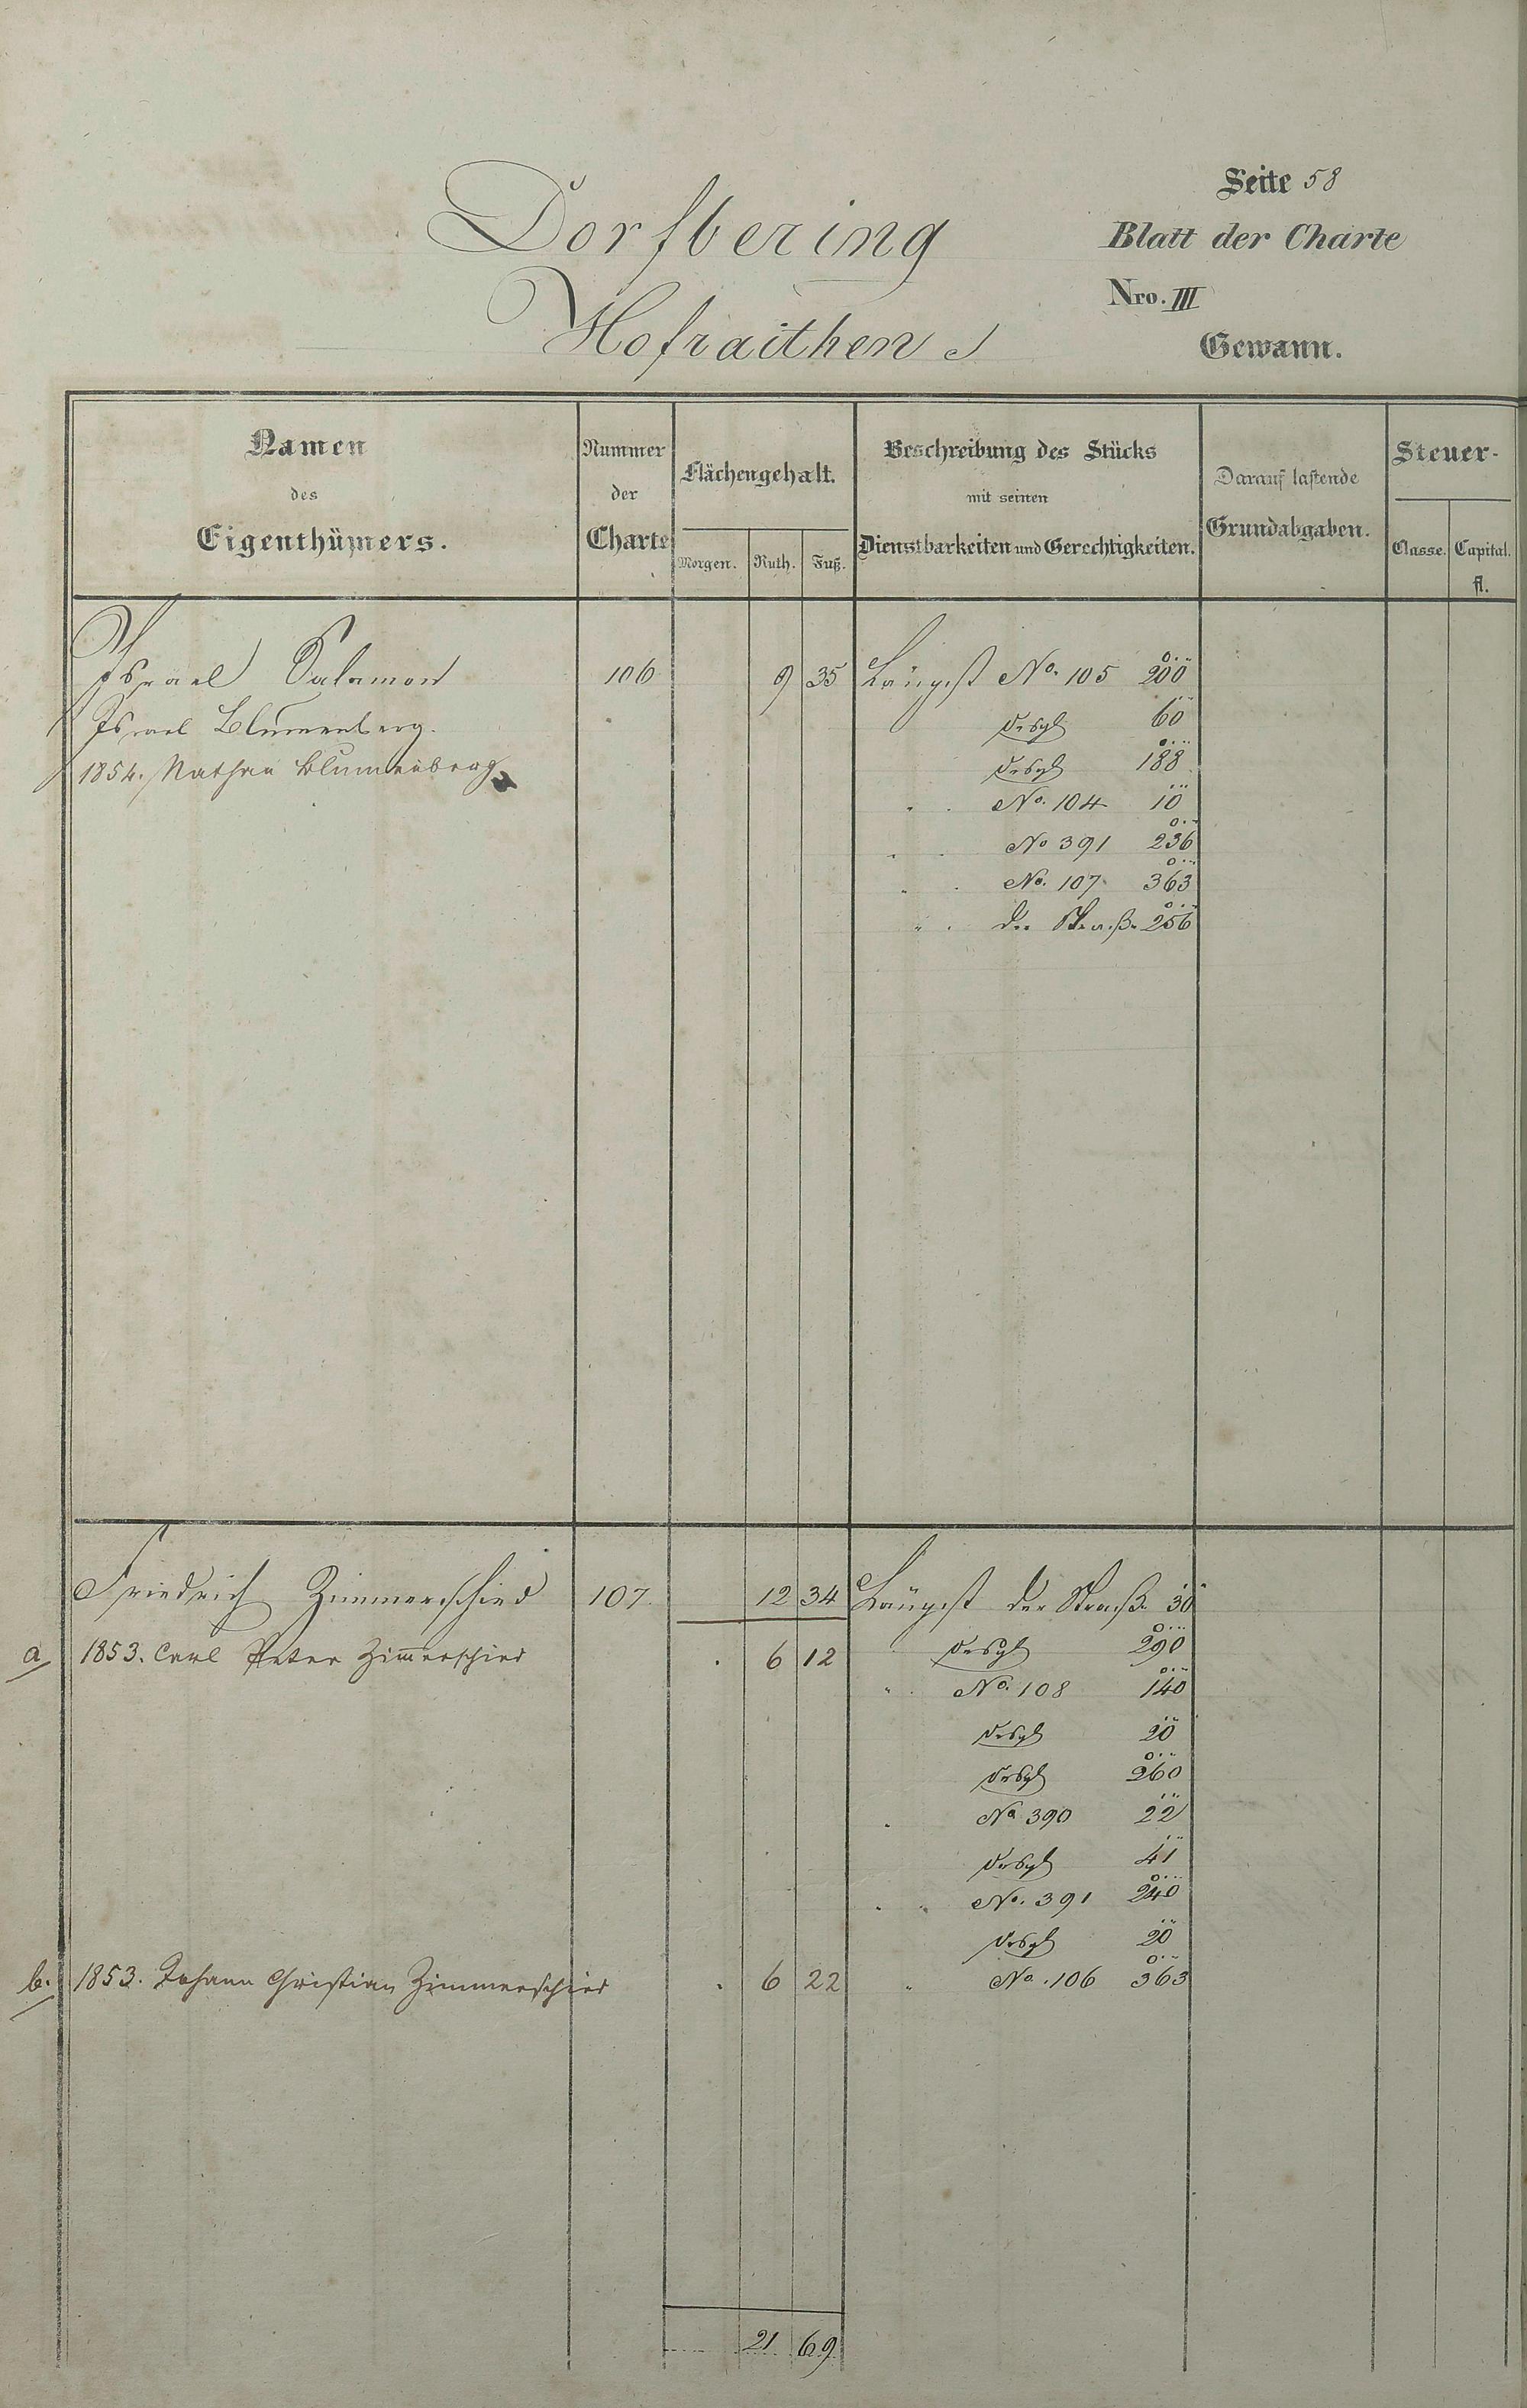 Dorfbering
Hofraithen
Seite 58
Blatt der Charte
Nro. III
Gewann.
Namen
des
Eigenthümers.
Nummer
der
Charte
Flächengehalt.
Morgen. Ruth. Fuß.
Beschreibung des Stücks
mit seinen
Dienstbarkeiten und Gerechtigkeiten.
Darauf lastende
Grundabgaben.
Steuer-
Classe. Capital.
fl.
Israel Salamon 106 9 35 Längst No. 105 200
Israel Blumenberg. desgl 60
1854. Nathan Blumenberg desgl 188
" " No. 104 10
" " No 391 236
" " No. 107 363
" " der Straße 256
Friedrich Zimmerschied 107. 12 34 Längst der Straße 30
a 1853. Carl Peter Zim̅erschied . 6 12 desgl 290
" " No. 108 140
desgl 20
desgl 260
" No 390 22
desgl 41
" " No. 391 240
desgl 20
b. 1853. Johann Christian Zimmerschied . 6 22 " No. 106 363
21 69